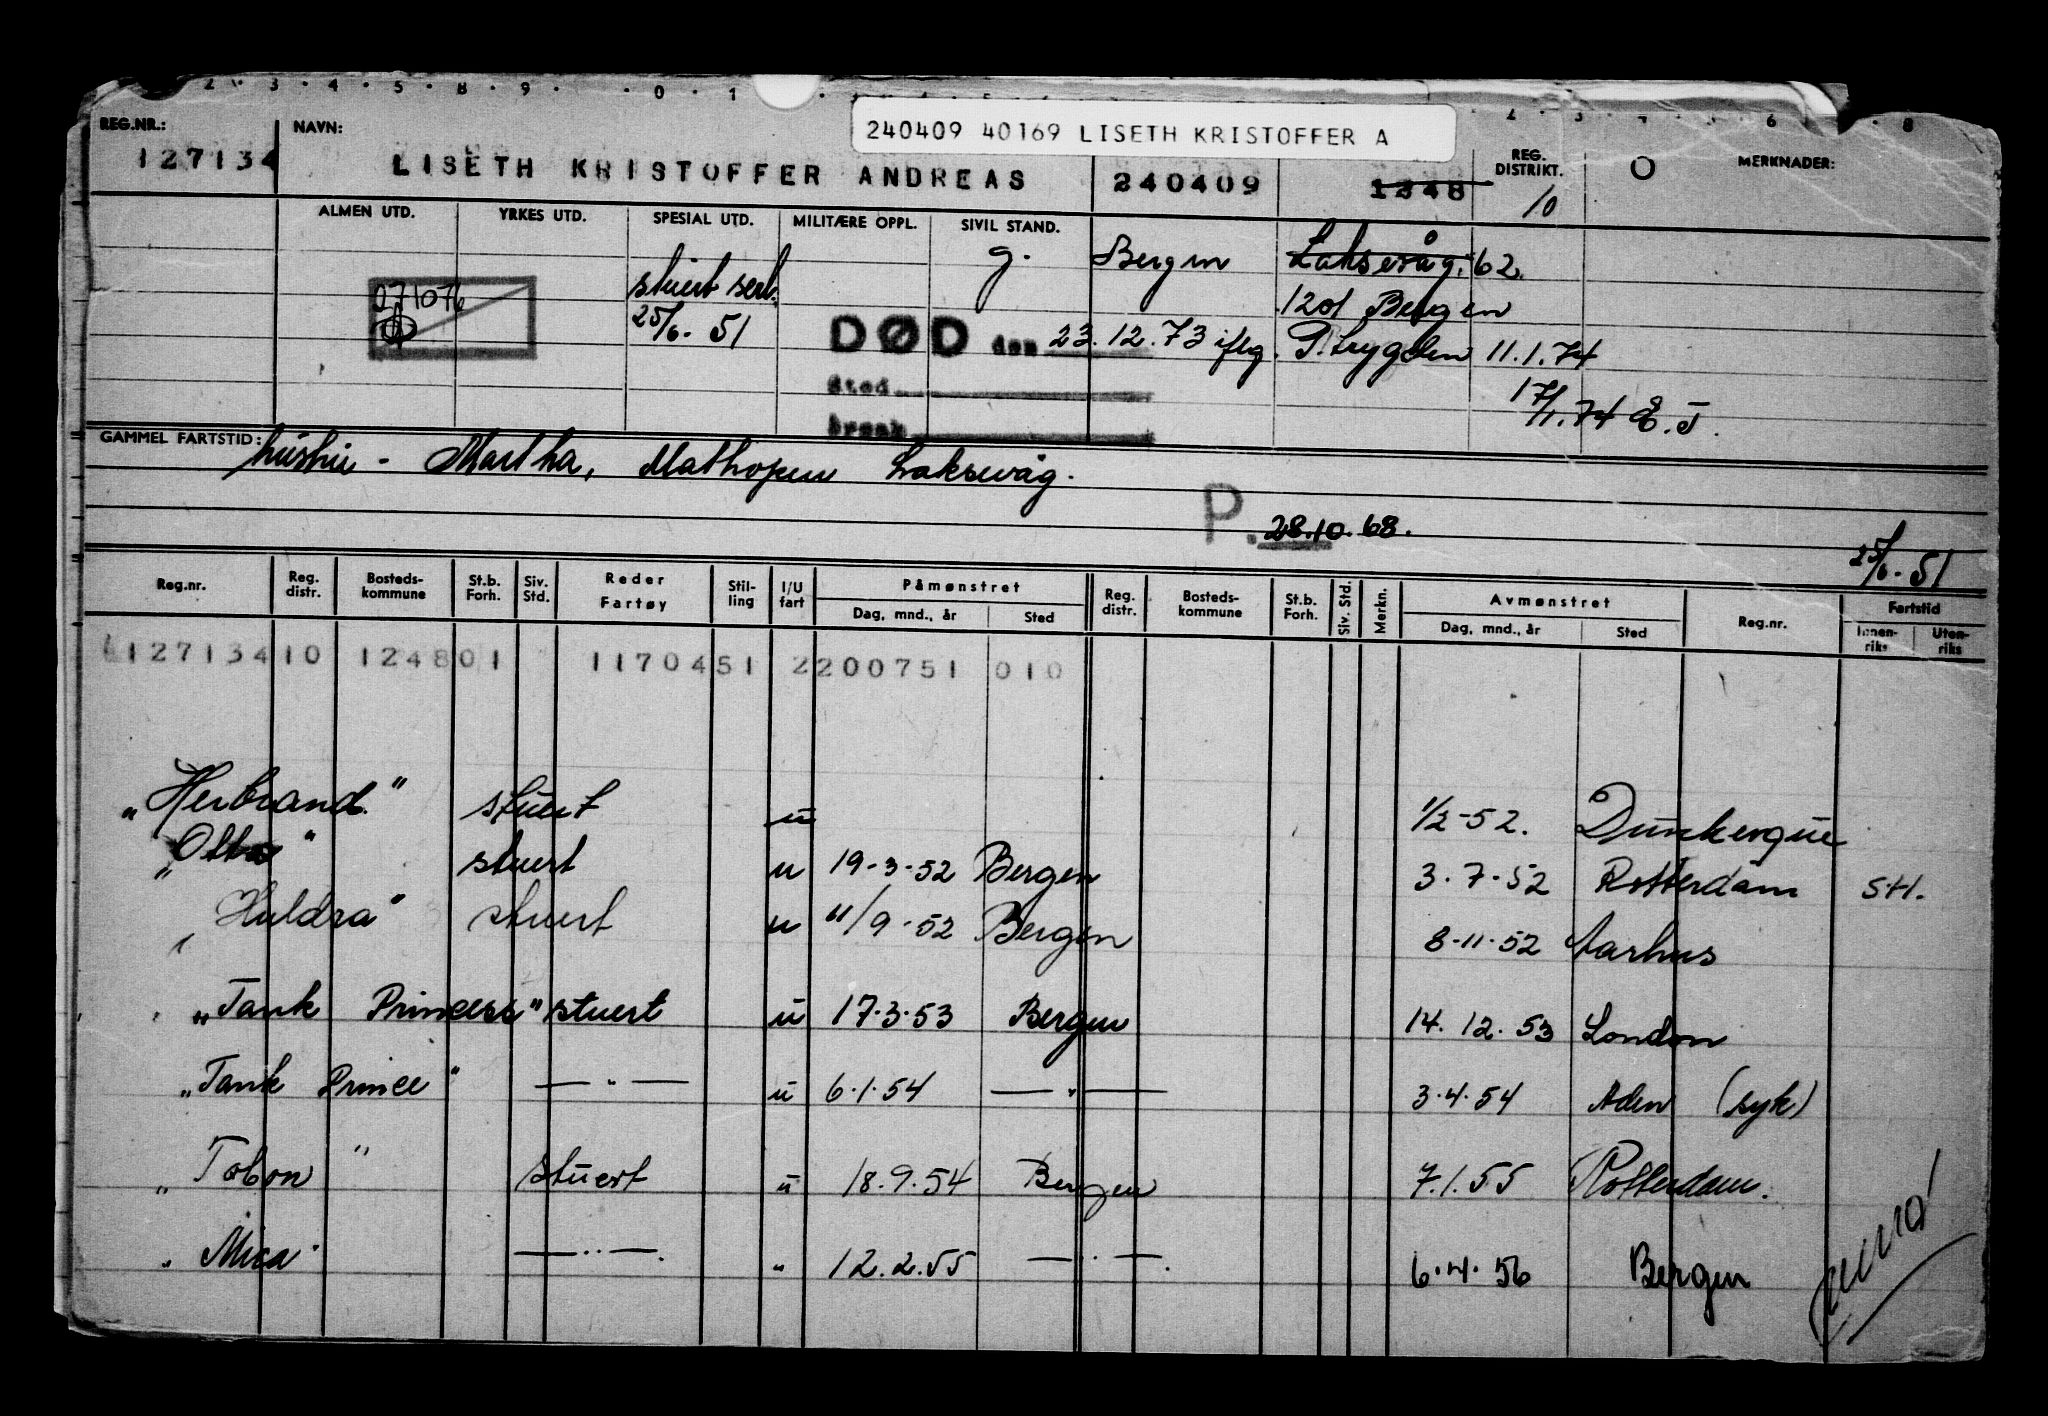 240409 40169 LISETH KRISTOFFER A
REG.NR.: NAVN: REG. DISTRIKT. MERKNADER:
127134 LISETH KRISTOFFER ANDREAS 240409 1248 10
ALMEN UTD. YRKES UTD. SPESIAL UTD. MILITÆRE OPPL. SIVIL STAND.
g. Bergen Laksevåg. 62.
071076 stuert sert. 1201 Bergen
25/6. 51 DØD den 23.12.73 iflg. P.trygden 11.1.74
Sted
17/1.74 E.J.
Årsak
GAMMEL FARTSTID: hustru - Martha, Mathopen Laksevåg.
P. 28.10.68.
25/6. 51
Reg.nr. Reg. distr. Bosteds-kommune St.b. Forh. Siv. Std. Reder Fartøy Stil-ling I/U fart Påmønstret Reg. distr. Bosteds-kommune St.b. Forh. Siv. Std. Merkn. Avmønstret Reg.nr. Fartstid
Dag, mnd., år Sted Dag, mnd., år Sted Innen-riks Uten-riks
127134 10 124801 1170451 2200751 010
"Herbrand" stuert u 1/2-52. Dunkerque
"Otto" stuert u 19-3-52 Bergen 3.7.52 Rotterdam
"Huldra" stuert u 11/9-52 Bergen 8-11-52 Aarhus
"Tank Princess" stuert u 17.3.53 Bergen 14.12.53 London
"Tank Prince" — " — u 6.1.54 — " — 3.4.54 Aden (syk)
" " stuert u 18.9.54 Bergen 7.1.55 Rotterdam.
"Mica" — " — " 12.2.55 — " — 6.4.56 Bergen